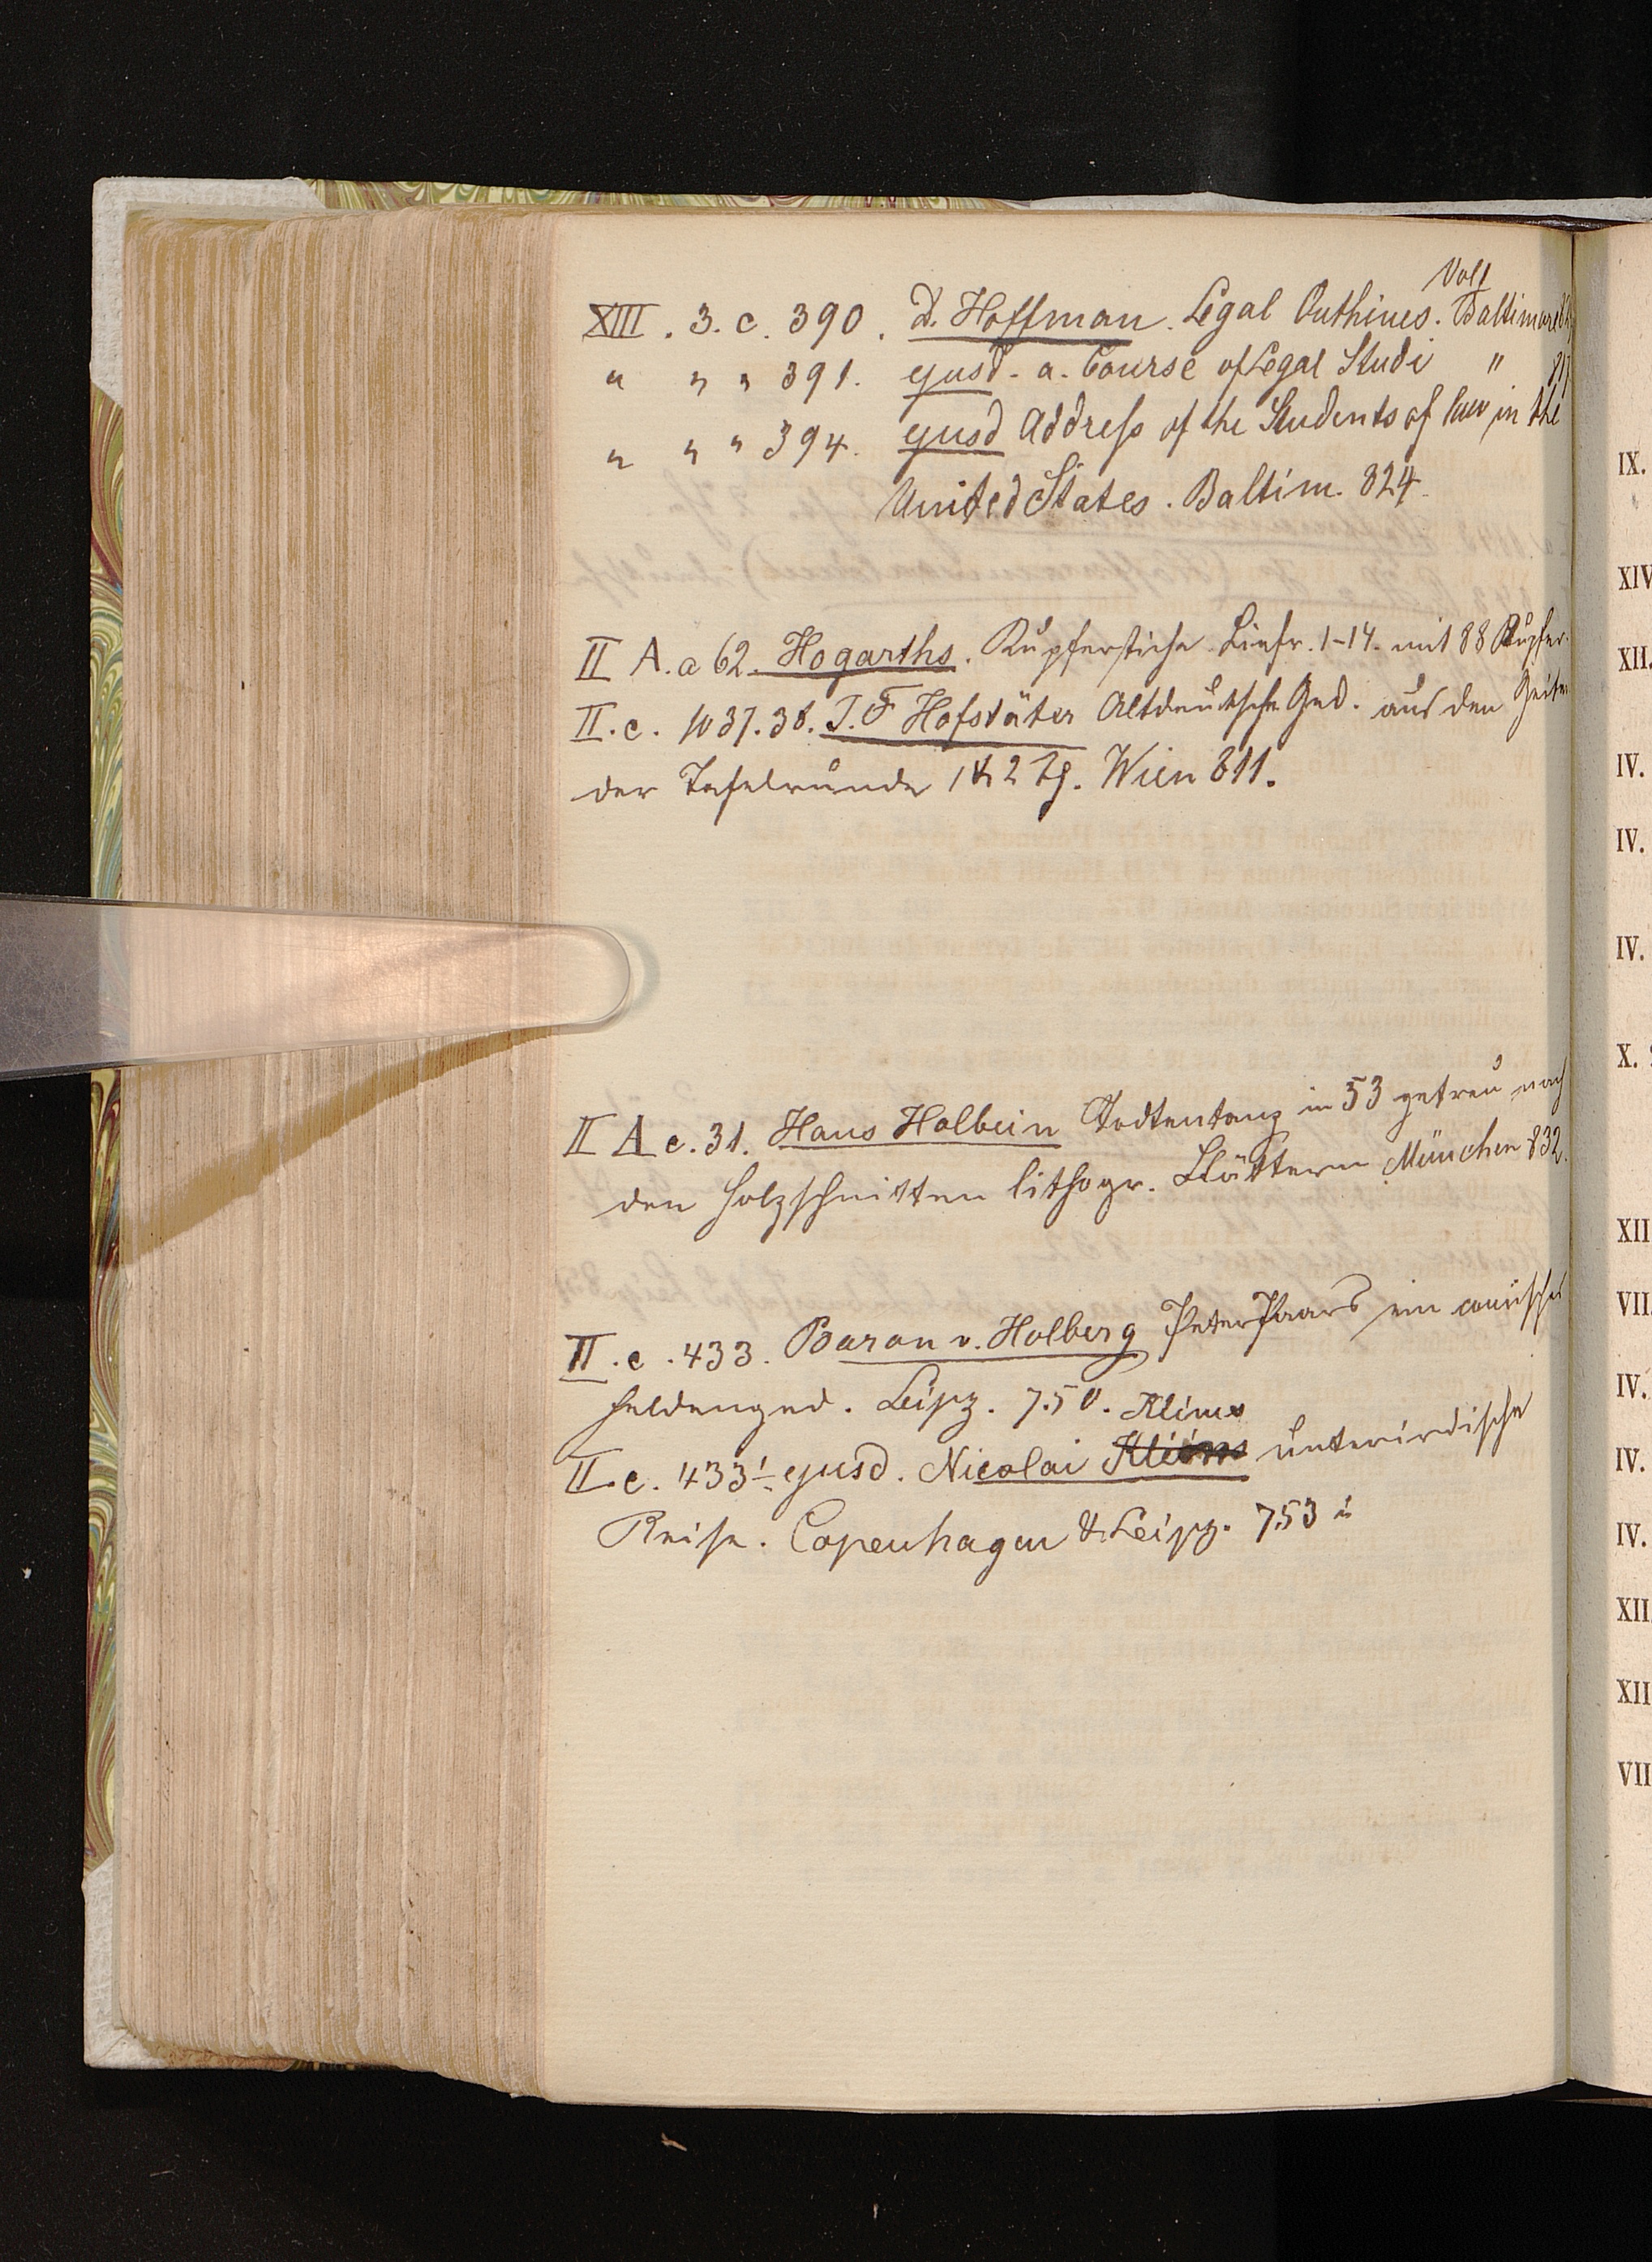 Vol I
XIII. 3. c. 390. D. Hoffman. Legal Outhines. Baltimore
" " " 391. ejusd. a. Course of Legal Studi " 817
" " " 394. ejusd Address of the Students of law in the
United States. Baltim. 824.
II A. a 62. Hogarths. Kupferstiche Liefr. 1-14. mit 88 Kupfer.
II. c. 1037. 38. J. F Hofstäter Altdeutsche Ged. aus den Zeiten
der Tafelrunde 1 & 2 Th. Wien 811.
II A c. 31. Hans Holbein Todtentanz in 53 getreu nach
den Holzschnitten lithogr. Blättern München 832.
II. c. 433. Baron v. Holberg Peter Paars ein comisches
Heldenged. Leipz. 750.
Klims
II. c. 433¹ ejusd. Nicolai unterirdische
Reise. Copenhagen & Leipz. 753
IX.
XIV
XII.
IV.
IV.
IV.
X.
XII
VII.
IV.
IV.
IV.
XII
XII
VII